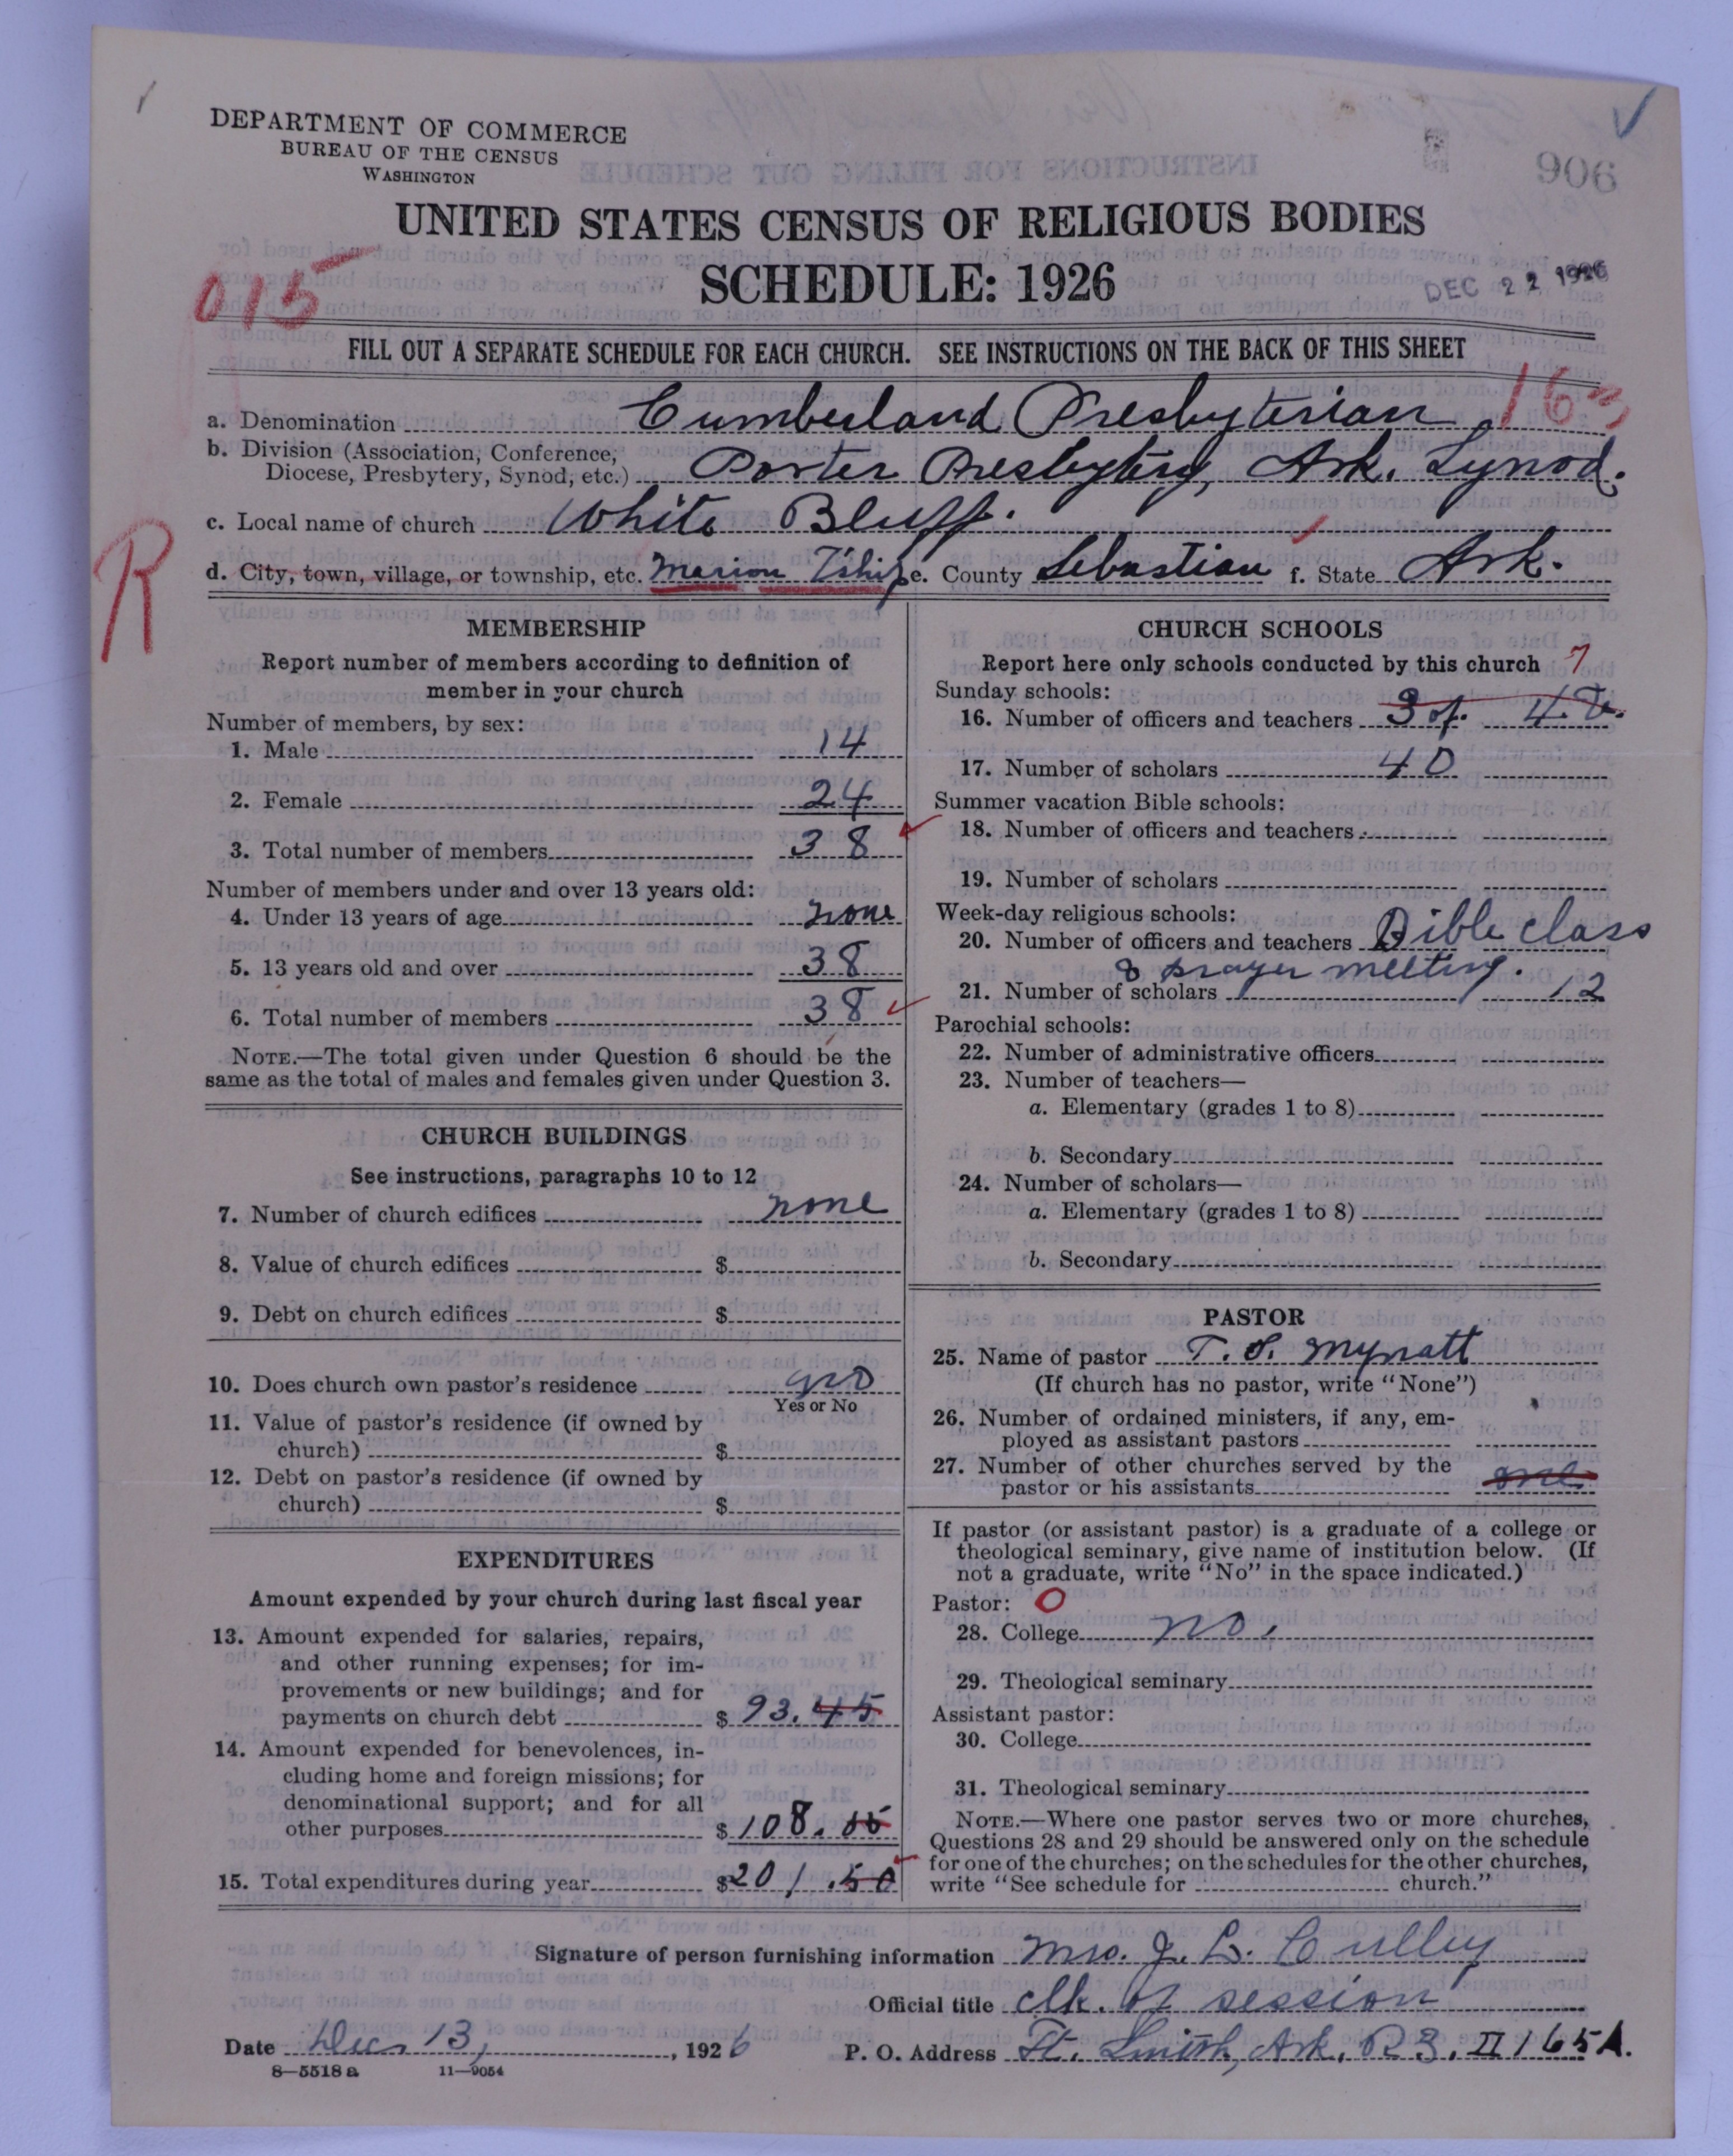 DEPARTMENT OF COMMERCE
BUREAU OF THE CENSUS
WASHINGTON
906
UNITED STATES CENSUS OF RELIGIOUS BODIES
SCHEDULE: 1926
015
DEC 22 1926
FILL OUT A SEPARATE SCHEDULE FOR EACH CHURCH. SEE INSTRUCTIONS ON THE BACK OF THIS SHEET
a. Denomination Cumberland Presbyterian 163
b. Division (Association, Conference,
Diocese, Presbytery, Synod, etc.) Porter Presbytery, Ark. Synod.
c. Local name of church White Bluff.
R
d. City, town, village, or township, etc. Marion T'ship e. County Sebastian f. State Ark.
MEMBERSHIP
Report number of members according to definition of
member in your church
Number of members, by sex:
1. Male 14
2. Female 24
3. Total number of members 38
Number of members under and over 13 years old:
4. Under 13 years of age none
5. 13 years old and over 38
6. Total number of members 38
NOTE.—The total given under Question 6 should be the
same as the total of males and females given under Question 3.
CHURCH BUILDINGS
See instructions, paragraphs 10 to 12
7. Number of church edifices none
8. Value of church edifices $
9. Debt on church edifices $
10. Does church own pastor's residence no
Yes or No
11. Value of pastor's residence (if owned by
church) $
12. Debt on pastor's residence (if owned by
church) $
EXPENDITURES
Amount expended by your church during last fiscal year
13. Amount expended for salaries, repairs,
and other running expenses; for im-
provements or new buildings; and for
payments on church debt $ 93.45
14. Amount expended for benevolences, in-
cluding home and foreign missions; for
denominational support; and for all
other purposes $ 108.
15. Total expenditures during year $ 201.50
CHURCH SCHOOLS
Report here only schools conducted by this church 7
Sunday schools:
16. Number of officers and teachers 3 of. 4 T.
17. Number of scholars 40
Summer vacation Bible schools:
18. Number of officers and teachers
19. Number of scholars
Week-day religious schools:
20. Number of officers and teachers Bible class
& prayer meeting.
21. Number of scholars 12
Parochial schools:
22. Number of administrative officers
23. Number of teachers—
a. Elementary (grades 1 to 8)
b. Secondary
24. Number of scholars—
a. Elementary (grades 1 to 8)
b. Secondary
PASTOR
25. Name of pastor T. S. Mynatt
(If church has no pastor, write "None")
26. Number of ordained ministers, if any, em-
ployed as assistant pastors
27. Number of other churches served by the
pastor or his assistants one
If pastor (or assistant pastor) is a graduate of a college or
theological seminary, give name of institution below. (If
not a graduate, write "No" in the space indicated.)
Pastor: 0
28. College no.
29. Theological seminary
Assistant pastor:
30. College
31. Theological seminary
NOTE.—Where one pastor serves two or more churches,
Questions 28 and 29 should be answered only on the schedule
for one of the churches; on the schedules for the other churches,
write "See schedule for church."
Signature of person furnishing information Mrs. J. L. Culley
Official title clk. of session
Date Dec. 13, 1926 P. O. Address Ft. Smith, Ark. R 3. II 165A.
8—5518a 11—9054